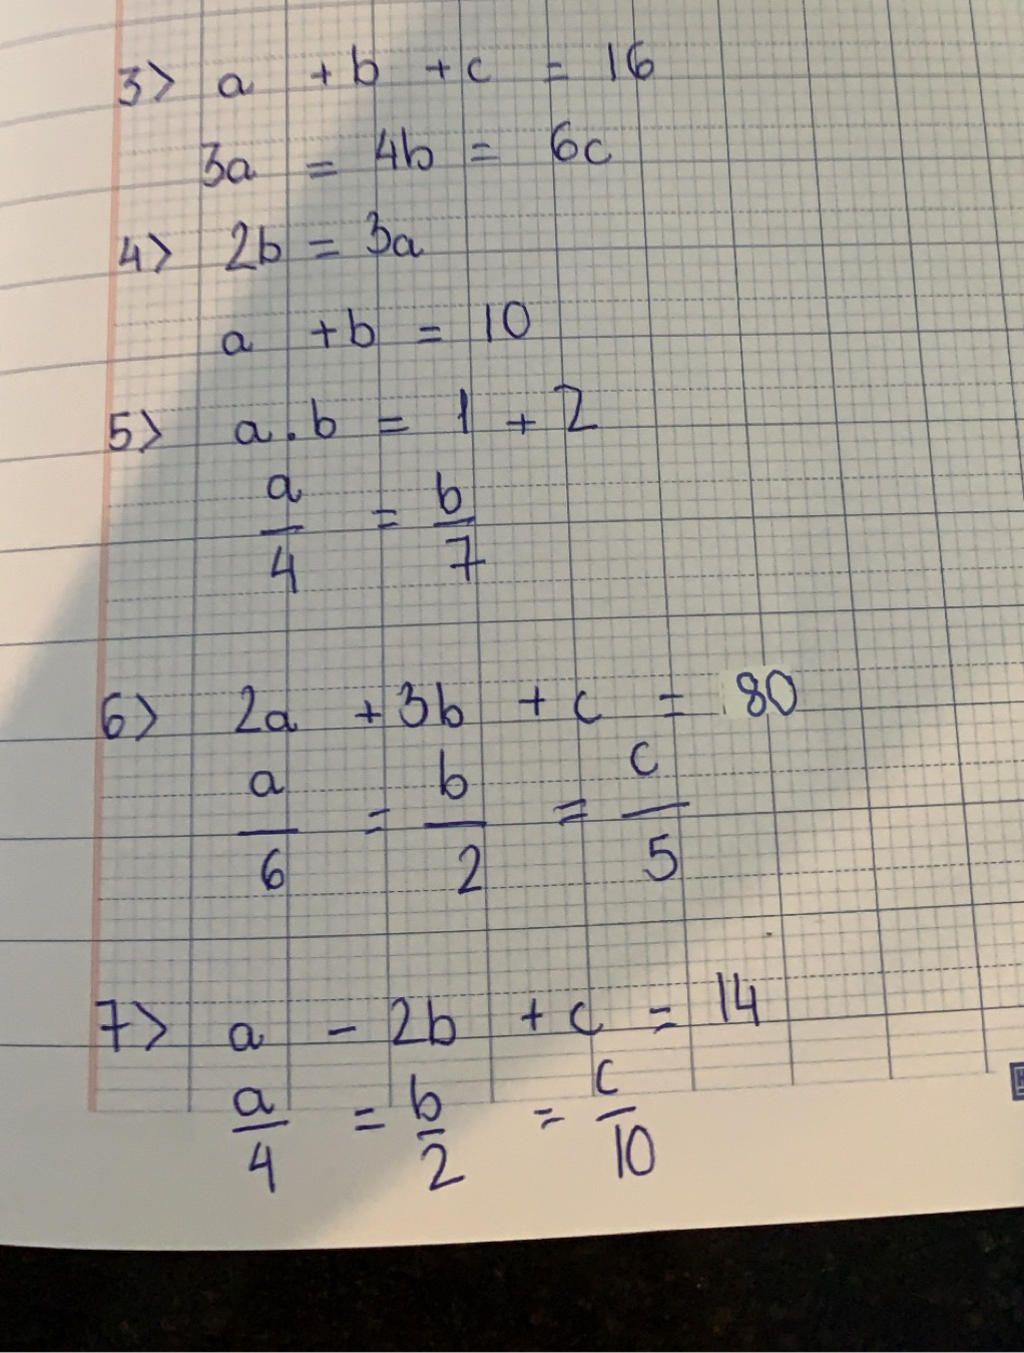 3> a + b + c = 16
3a = 4b = 6c
4> 2b = 3a
a + b = 10
5> a . b = 1 + 2
a/4 = b/7
6> 2a + 3b + c = 80
a/6 = b/2 = c/5
7> a - 2b + c = 14
a/4 = b/2 = c/10